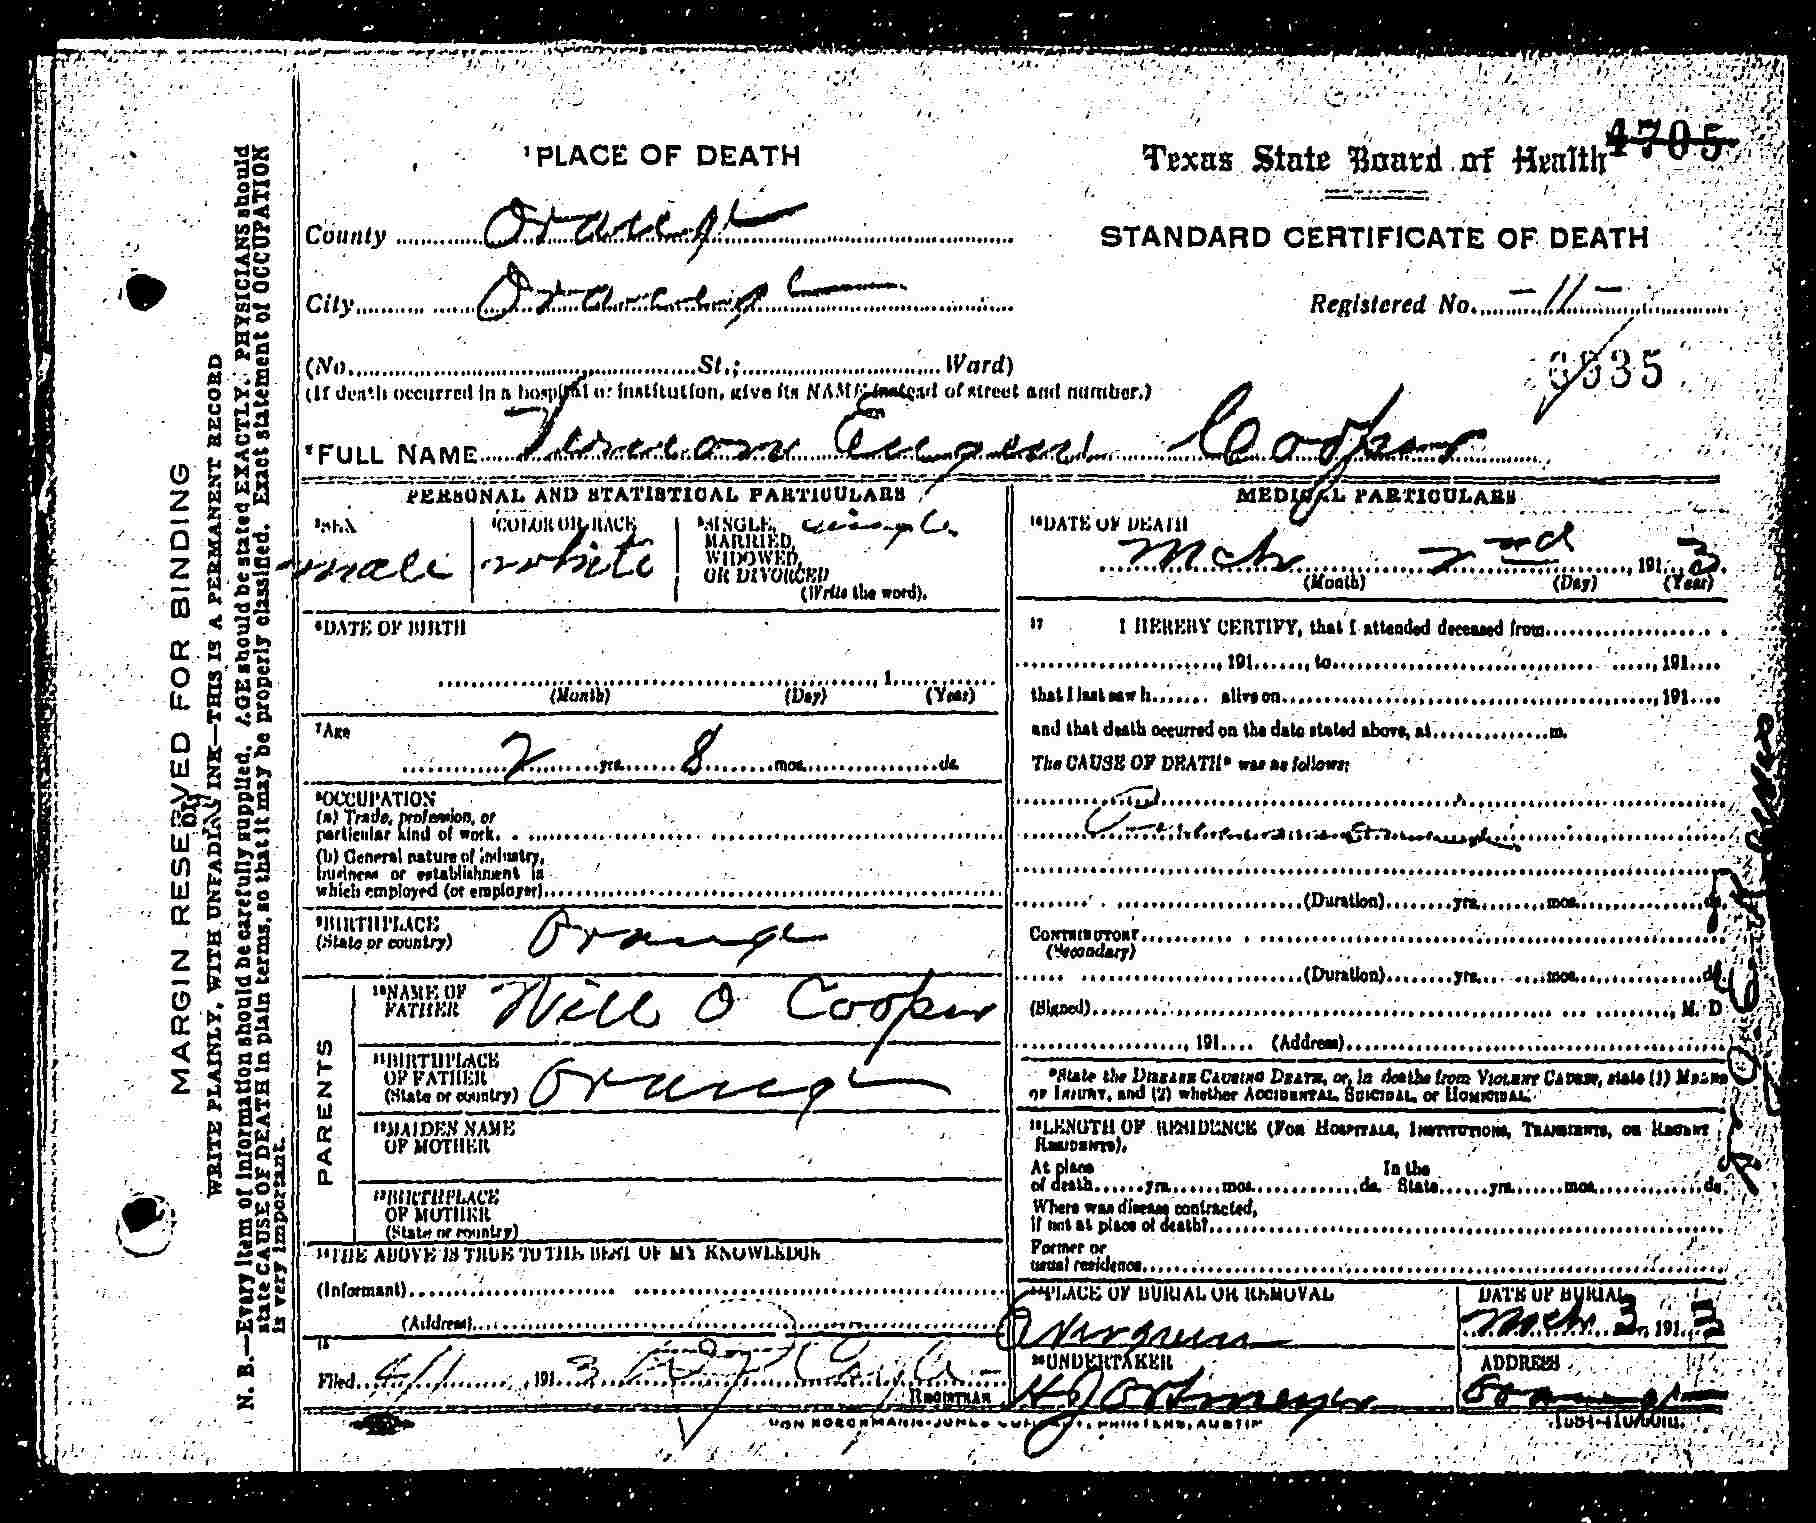 4705
¹PLACE OF DEATH
Texas State Board of Health
County Orange
STANDARD CERTIFICATE OF DEATH
City Orange
Registered No. -11-
(No. St.; Ward)
6535
(If death occurred in a hospital or institution, give its NAME instead of street and number.)
²FULL NAME Vernon Eugene Cooper
PERSONAL AND STATISTICAL PARTICULARS
³SEX male
⁴COLOR OR RACE white
⁵SINGLE, MARRIED, WIDOWED, OR DIVORCED single
(Write the word).
⁶DATE OF BIRTH
, 1
(Month) (Day) (Year)
⁷Age
2 yrs. 8 mos. ds.
⁸OCCUPATION
(a) Trade, profession, or
particular kind of work.
(b) General nature of industry,
business or establishment in
which employed (or employer)
⁹BIRTHPLACE
(State or country) Orange
PARENTS
¹⁰NAME OF
FATHER Will O Cooper
¹¹BIRTHPLACE
OF FATHER
(State or country) Orange
¹²MAIDEN NAME
OF MOTHER
¹³BIRTHPLACE
OF MOTHER
(State or country)
¹⁴THE ABOVE IS TRUE TO THE BEST OF MY KNOWLEDGE
(Informant)
(Address)
15
Filed 4/1, 1913
REGISTRAR
MEDICAL PARTICULARS
¹⁶DATE OF DEATH
Mch 2nd, 1913
(Month) (Day) (Year)
17 I HEREBY CERTIFY, that I attended deceased from
, 191 , to , 191
that I last saw h alive on , 191
and that death occurred on the date stated above, at m.
The CAUSE OF DEATH* was as follows:
(Duration) yrs. mos. ds.
CONTRIBUTORY
(Secondary)
(Duration) yrs. mos. ds.
(Signed) , M. D
, 191 (Address)
*State the DISEASE CAUSING DEATH, or, in deaths from VIOLENT CAUSES, state (1) MEANS
OF INJURY, and (2) whether ACCIDENTAL, SUICIDAL, or HOMICIDAL.
¹⁸LENGTH OF RESIDENCE (FOR HOSPITALS, INSTITUTIONS, TRANSIENTS, OR RECENT
RESIDENTS).
At place In the
of death yrs. mos. ds. State yrs. mos. ds.
Where was disease contracted,
if not at place of death?
Former or
usual residence
¹⁹PLACE OF BURIAL OR REMOVAL
Evergreen
DATE OF BURIAL
Mch 3, 1913
²⁰UNDERTAKER
ADDRESS
Orange
VON BOECKMANN-JONES COMPANY, PRINTERS, AUSTIN
MARGIN RESERVED FOR BINDING
WRITE PLAINLY, WITH UNFADING INK—THIS IS A PERMANENT RECORD
N. B.—Every item of information should be carefully supplied. AGE should be stated EXACTLY. PHYSICIANS should
state CAUSE OF DEATH in plain terms, so that it may be properly classified. Exact statement of OCCUPATION
is very important.